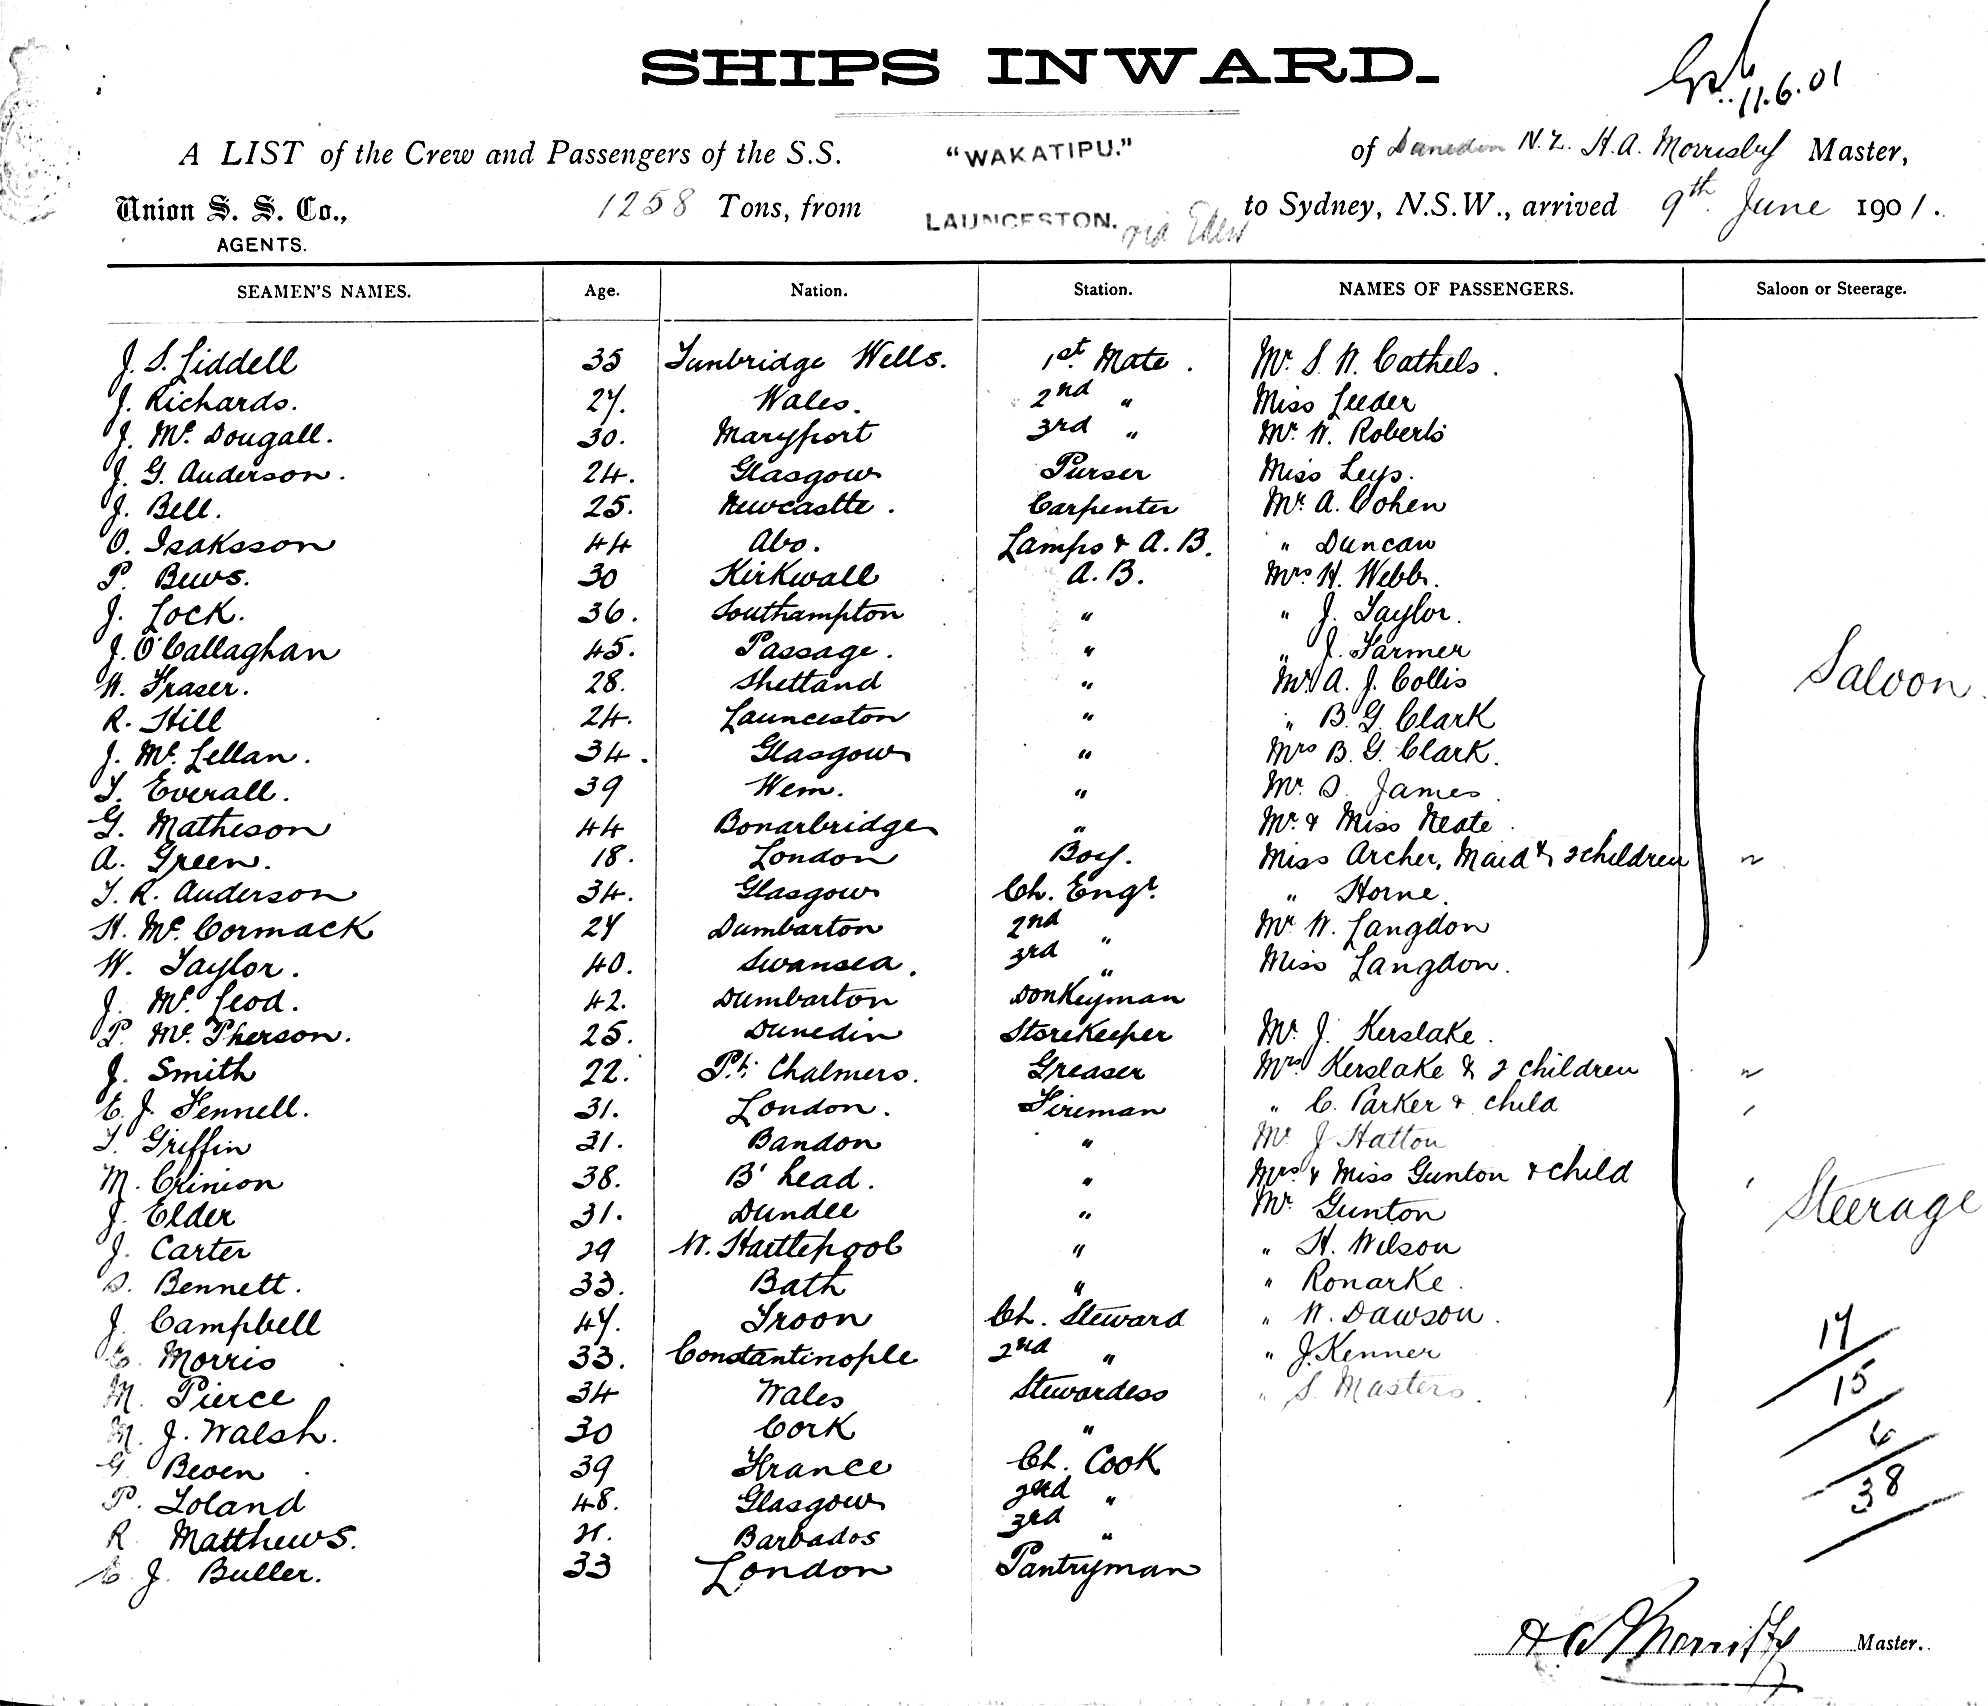 SHIPS INWARD.
11.6.01
A LIST of the Crew and Passengers of the S.S. "WAKATIPU." of Dunedin N.Z. H.A. Morrisby Master,
Union S. S. Co., 1258 Tons, from LAUNCESTON. via Eden to Sydney, N.S.W., arrived 9th June 1901.
AGENTS.
SEAMEN'S NAMES. Age. Nation. Station. NAMES OF PASSENGERS. Saloon or Steerage.
J. S. Liddell 35 Tunbridge Wells. 1st Mate. Mr. S. W. Cathels.
J. Richards. 27. Wales. 2nd " Miss Leeder
J. Mc Dougall. 30. Maryport 3rd " Mr. W. Roberts
J. G. Anderson. 24. Glasgow Purser Miss Leys.
J. Bell. 25. Newcastle. Carpenter Mr. A. Cohen
O. Isaksson 44 Abo. Lamps & A.B. " Duncan
P. Bews. 30 Kirkwall A.B. Mrs H. Webb.
J. Lock. 36. Southampton " " J. Taylor.
J. O'Callaghan 45. Passage. " " J. Farmer
W. Fraser. 28. Shetland " Mr. A. J. Collis Saloon
R. Hill 24. Launceston " " B. G. Clark
J. Mc Lellan. 34. Glasgow " Mrs B. G. Clark.
T. Everall. 39 Wem. " Mr. S. James.
G. Matheson 44 Bonarbridge " Mr. & Miss Neate.
A. Green. 18. London Boy. Miss Archer, Maid & 2 children "
T. R. Anderson 34. Glasgow Ch. Engr. " Horne.
H. Mc. Cormack 27 Dumbarton 2nd " Mr W. Langdon
W. Taylor. 40. Swansea. 3rd " Miss Langdon.
J. Mc. Leod. 42. Dumbarton Donkeyman
P. Mc. Pherson. 25. Dunedin Storekeeper Mr. J. Kerslake.
J. Smith 22. Pt. Chalmers. Greaser Mrs Kerslake & 2 children "
E. J. Fennell. 31. London. Fireman " C. Parker & child
T. Griffin 31. Bandon " Mr J Hatton
M. Crinion 38. B'head. " Mrs. & Miss Gunton & child
J. Elder 31. Dundee " Mr. Gunton Steerage
J. Carter 29 W. Hartlepool " " H. Wilson
S. Bennett. 33. Bath " " Ronarke.
J. Campbell 47. Troon Ch. Steward " W. Dawson.
E. Morris 33. Constantinople 2nd " " J. Kenner
M. Pierce 34 Wales Stewardess " S. Masters.
M. J. Walsh. 30 Cork "
G. Beven 39 France Ch. Cook
P. Toland 48. Glasgow 2nd "
R. Matthews. Barbados 3rd "
E. J. Buller. 33 London Pantryman
17
15
6
38
H A Morrisby Master.